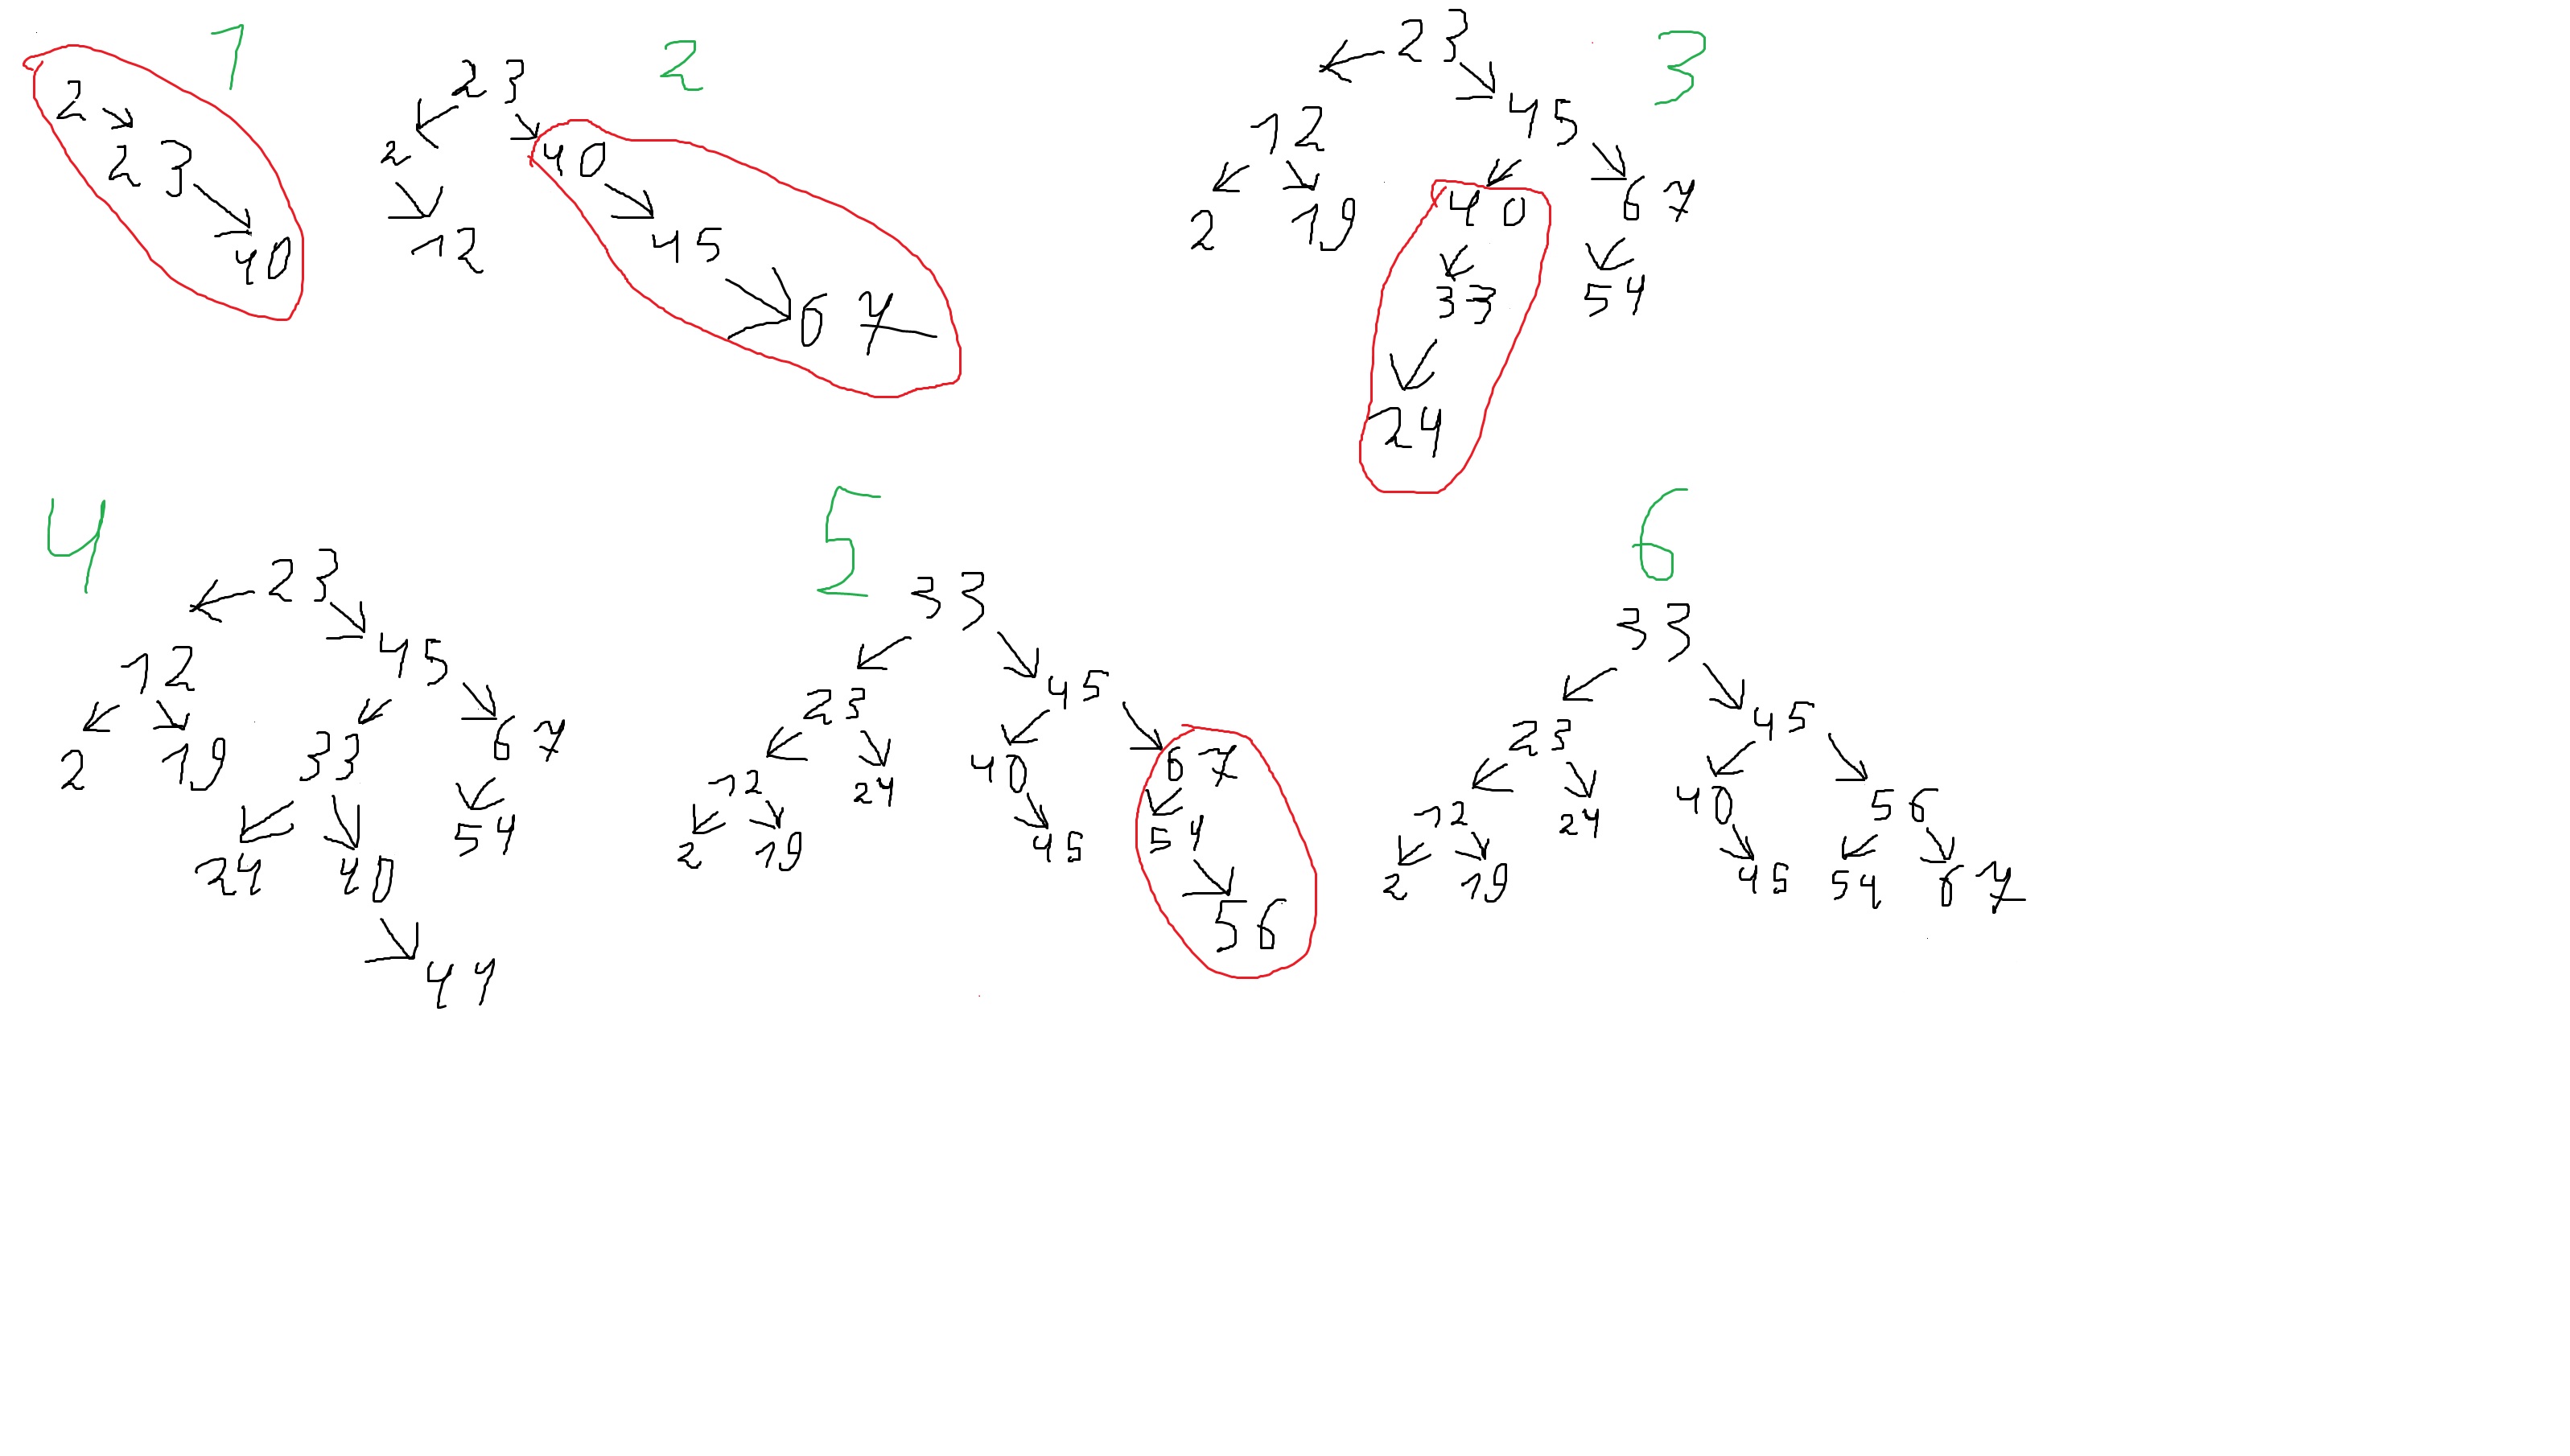 1
2
23
40
2
23
2
40
12
45
67
3
23
12
45
2
19
40
67
33
54
24
4
23
12
45
2
19
33
67
24
40
54
44
5
33
23
45
12
24
40
67
2
19
45
54
56
6
33
23
45
12
24
40
56
2
19
45
54
67